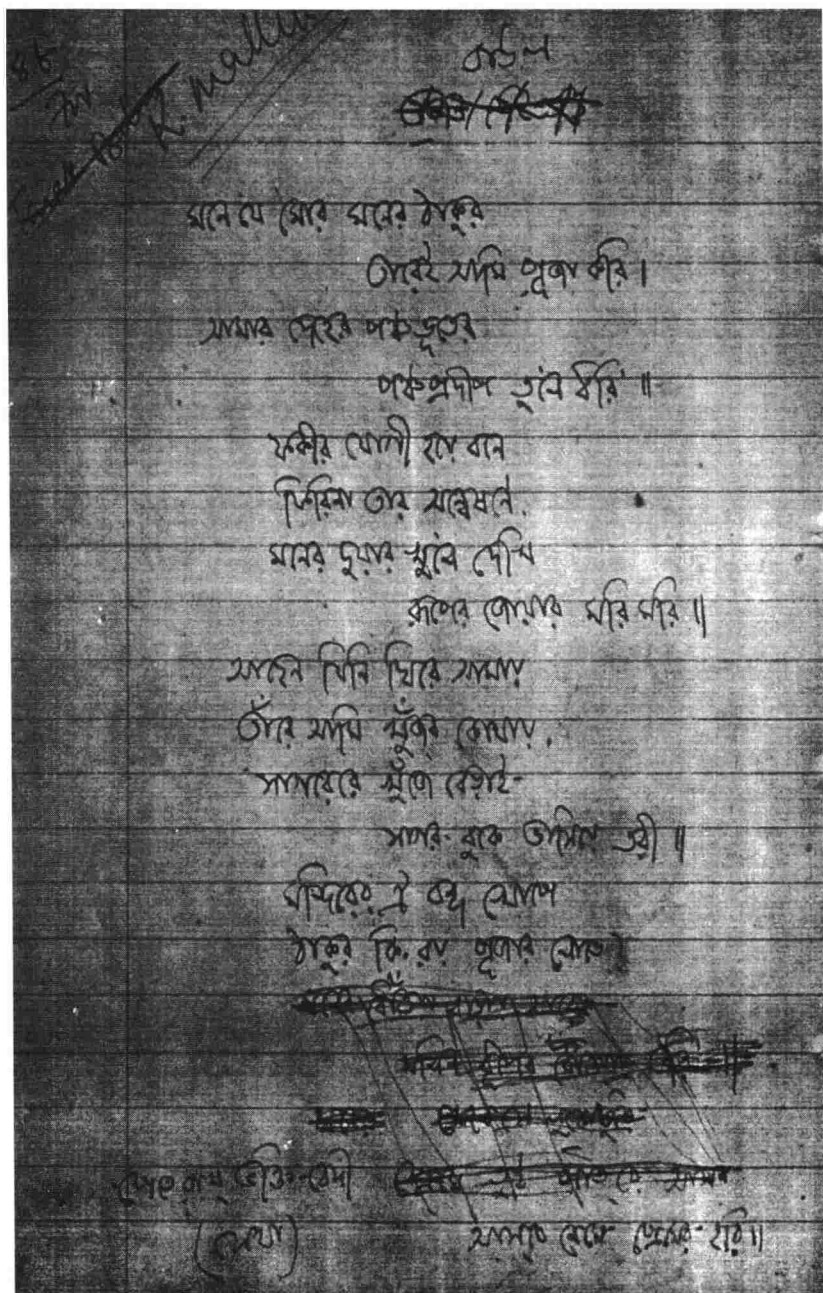 ৪৮
K. Mallick
বাউল
মনে যে মোর মনের ঠাকুর
তারেই আমি পূজা করি।
আমার দেহের পঞ্চভূতের
পঞ্চপ্রদীপ তুলে ধরি॥
ফকীর যোগী হয়ে বনে
ফিরিনা তার অন্বেষণে,
মনের দুয়ার খুলে দেখি
রূপের জোয়ার মরি মরি॥
আছেন যিনি ঘিরে আমায়
তাঁরে আমি খুঁজব কোথায়,
সাগরেরে খুঁজে বেড়াই-
সাগর-বুকে ভাসিয়ে তরী॥
মন্দিরের ঐ বন্ধ খোপে
ঠাকুর কি রয় পূজার লোভে।
পেতে রাখ ভক্তি-বেদী
(সেথা) আসবে নেমে প্রেমের হরি॥